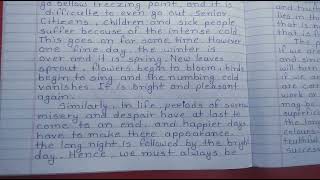 go bellow freezing point, and it is
difficulte to even go out. Senior
Citizens, children and sick people
suffer because of the intense cold.
This goes on for some time. However
one fine day, the winter is
over and it is spring. New leaves
sprout, flowers begin to bloom, birds
begin to sing and the numbing cold
vanishes. It is bright and pleasant
again.
Similarly, in life, periods of sorrow
misery and despair have at last to
come to an end, and happier days
have to make there appearance.
the long night is followed by the bright
day. Hence, we must always be
and
lies in
that is
that is f
If we
and sinc
will harn
if we ar
work or
may be
superfici
the long
colours
truthful
success